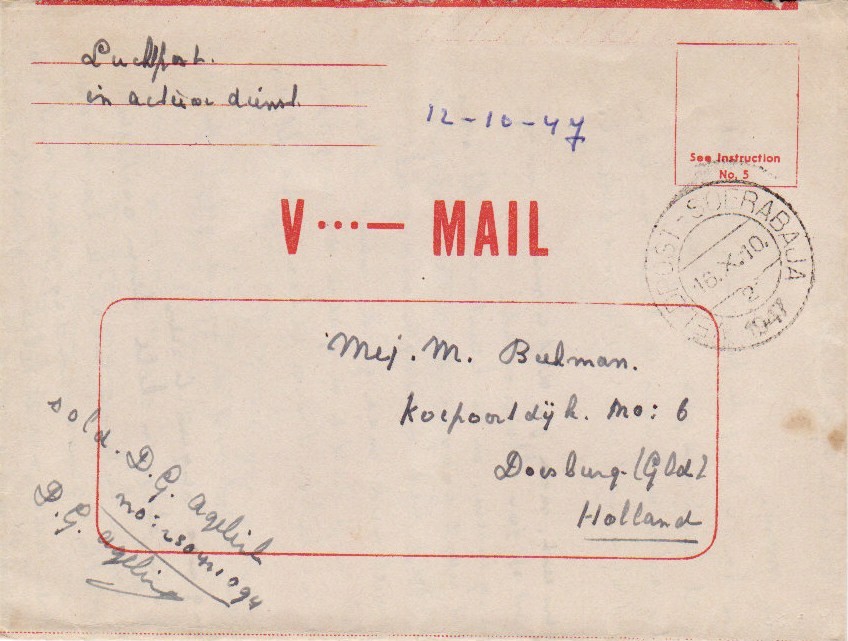 Luchtpost.
in actieve dienst.
12-10-47
See Instruction
No. 5
V ···— MAIL
VELDPOST-SOERABAJA
16.X.10.
2
1947
Mej. M. Buhman.
Koepoortdijk. No: 6
Doesburg-(Gld)
Holland
sold. D.G. Ageling
no: 250421094
D.G. Ageling